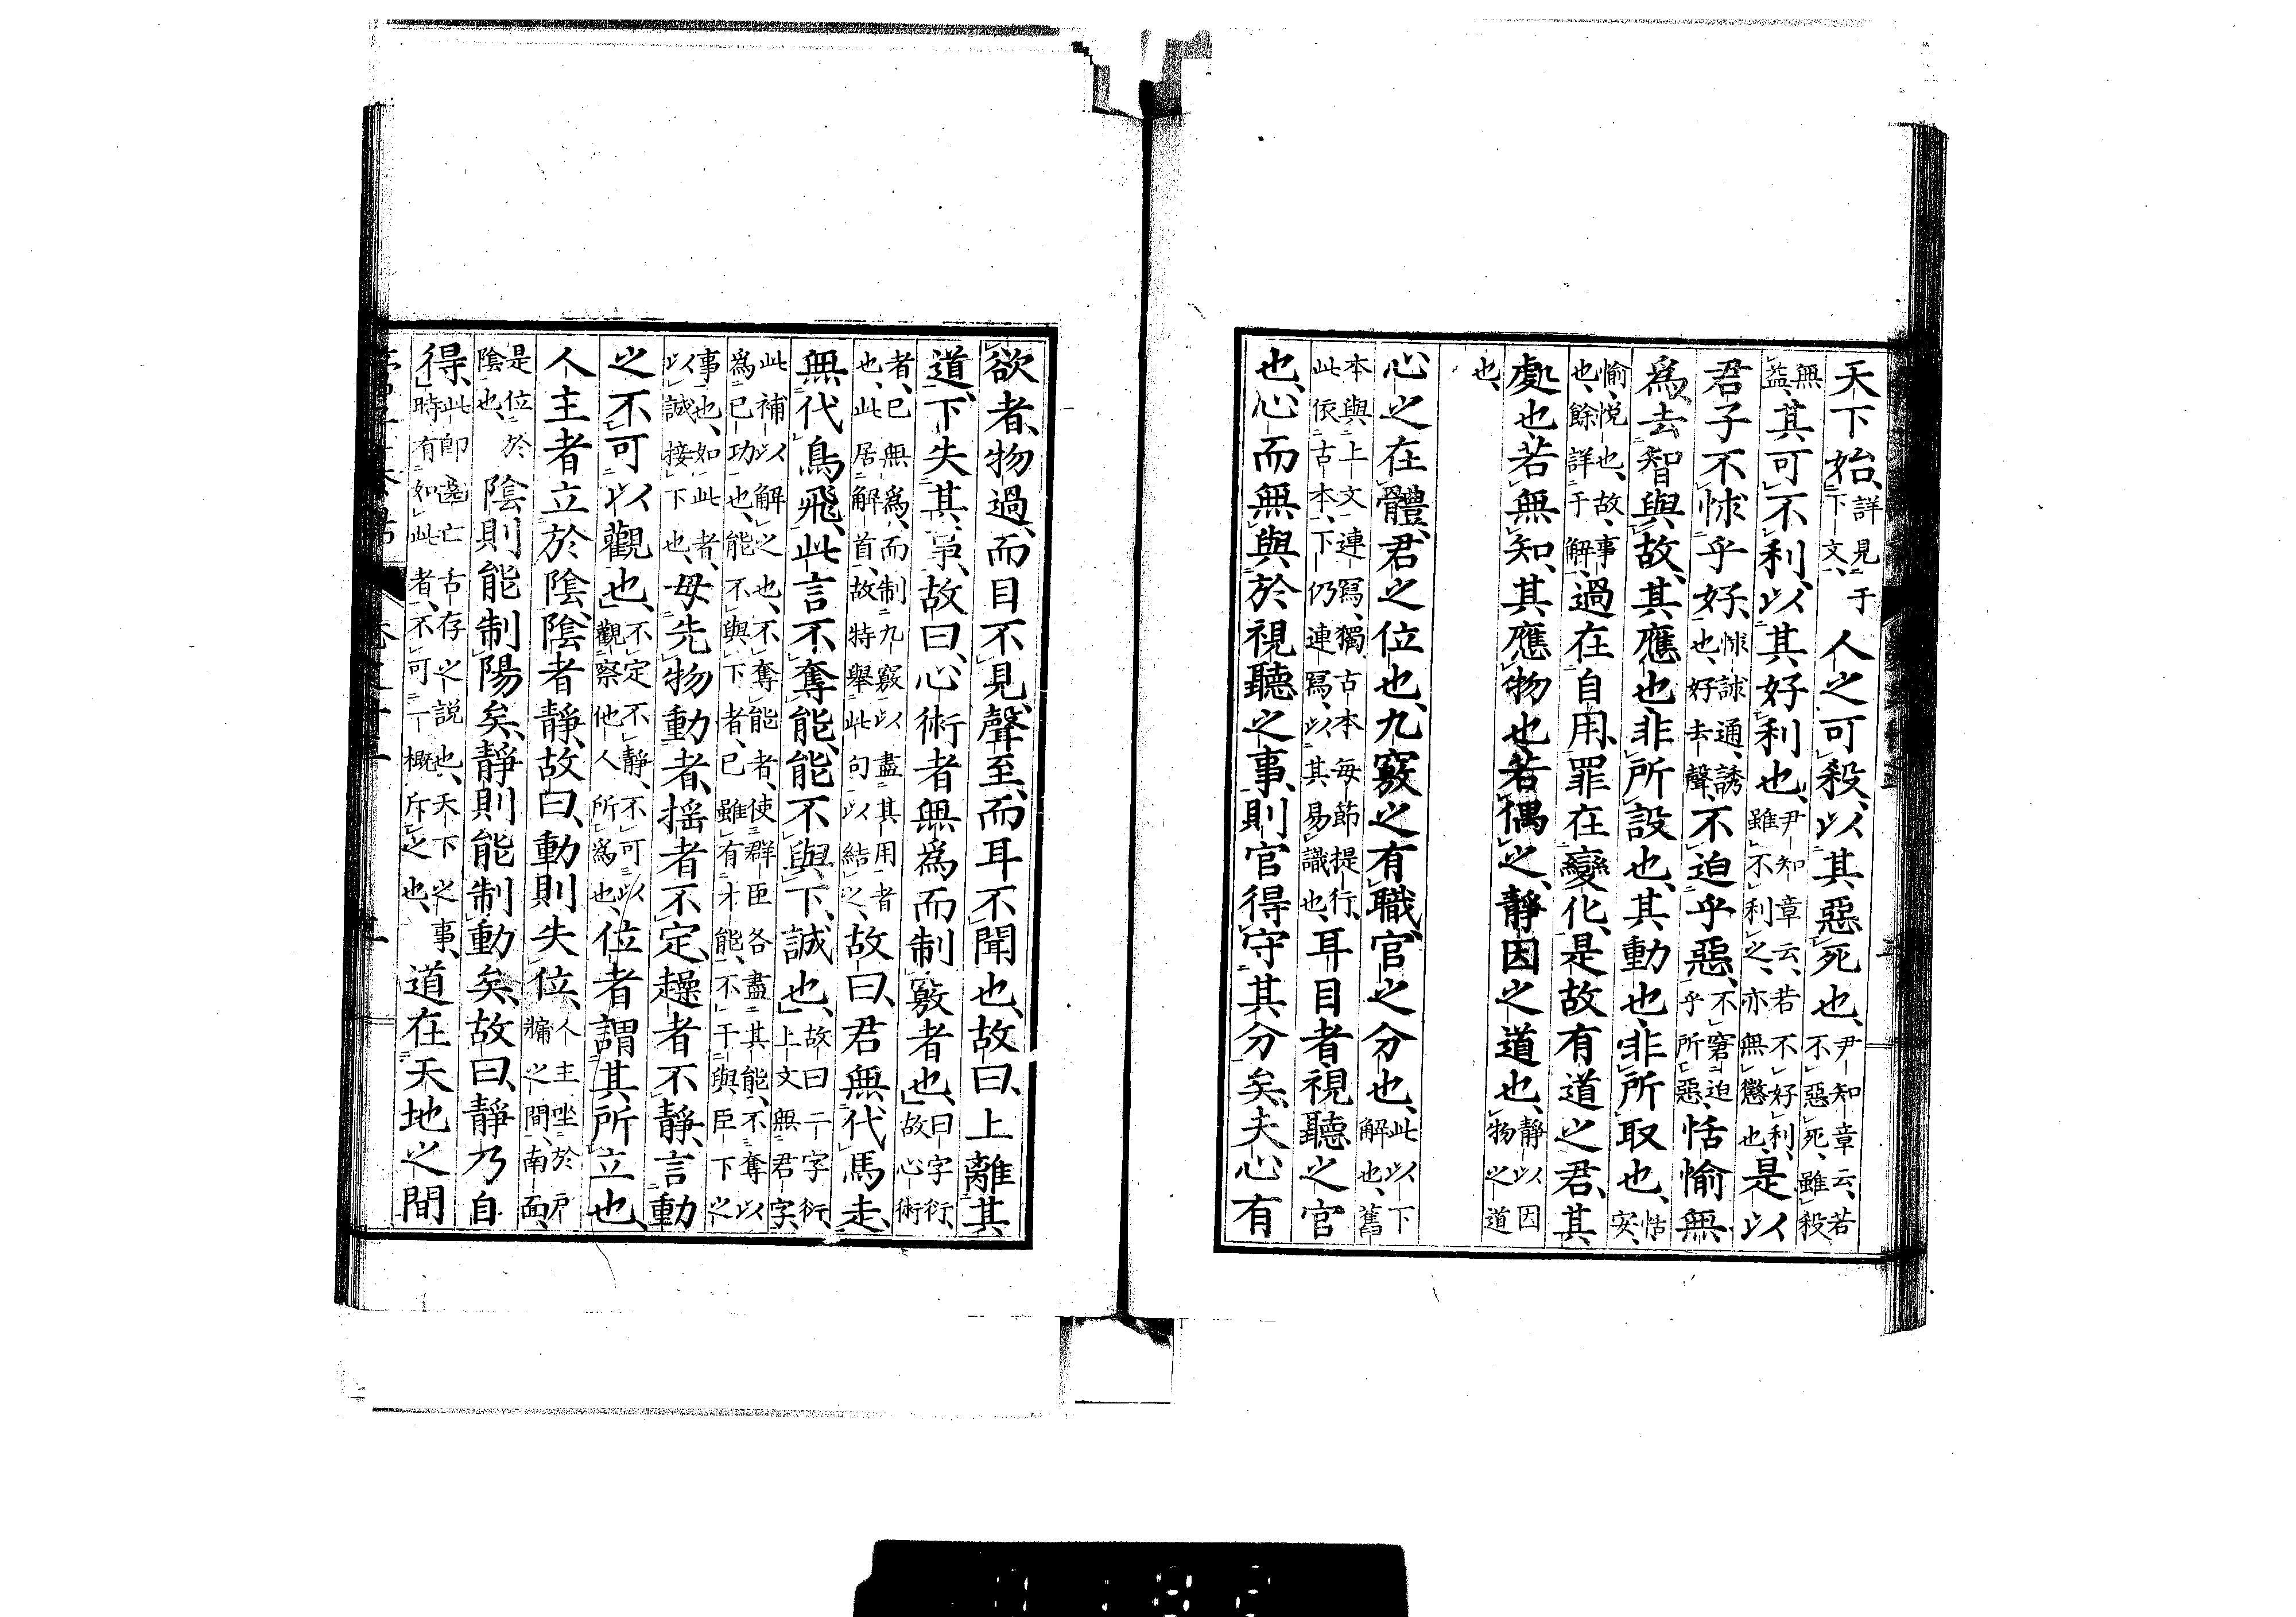 天下始、詳見于下文、人之可殺、以其惡死也、尹知章云、若不惡死、雖殺
無益、其可不利、以其好利也、尹知章云、若不好利、雖不利之、亦無懲也、是以
君子不怵乎好、怵訹通、誘也、好去聲、不迫乎惡、不窘迫乎所惡、恬愉無
爲、去智與故、其應也、非所設也、其動也、非所取也、恬安、
愉悅也、故、事也、餘詳于解、過在自用、罪在變化、是故有道之君、其
處也、若無知、其應物也、若偶之、靜因之道也、靜以因物之道
也、
心之在體、君之位也、九竅之有職、官之分也、此以下解也、舊
本與上文連寫、獨古本每節提行、此依古本、下仍連寫、以其易識也、耳目者、視聽之官
也、心而無與於視聽之事、則官得守其分矣、夫心有
欲者、物過、而目不見、聲至、而耳不聞也、故曰、上離其
道、下失其事、故曰、心術者無爲而制竅者也、曰字衍、故心術
者、已無爲、而制九竅以盡其用者也、此居解首、故特舉此句以結之、故曰、君無代馬走、
無代鳥飛、此言不奪能、能不與下、誠也、故曰二字衍、上文無君字、
此補以解之也、不奪能者、使群臣各盡其能、不奪以爲已功也、能不與下者、已雖有才能、不干與臣下之
事也、如此者、以誠接下也、毋先物動者、搖者不定、趮者不靜、言動
之不可以觀也、不定不靜、不可以觀察他人所爲也、位者謂其所立也、
人主者立於陰、陰者靜、故曰、動則失位、人主坐於戶牖之間、南面、
是位於陰也、陰則能制陽矣、靜則能制動矣、故曰、靜乃自
得、此即邊亡古存之說也、天下之事、時有如此者、不可一概斥之也、道在天地之間